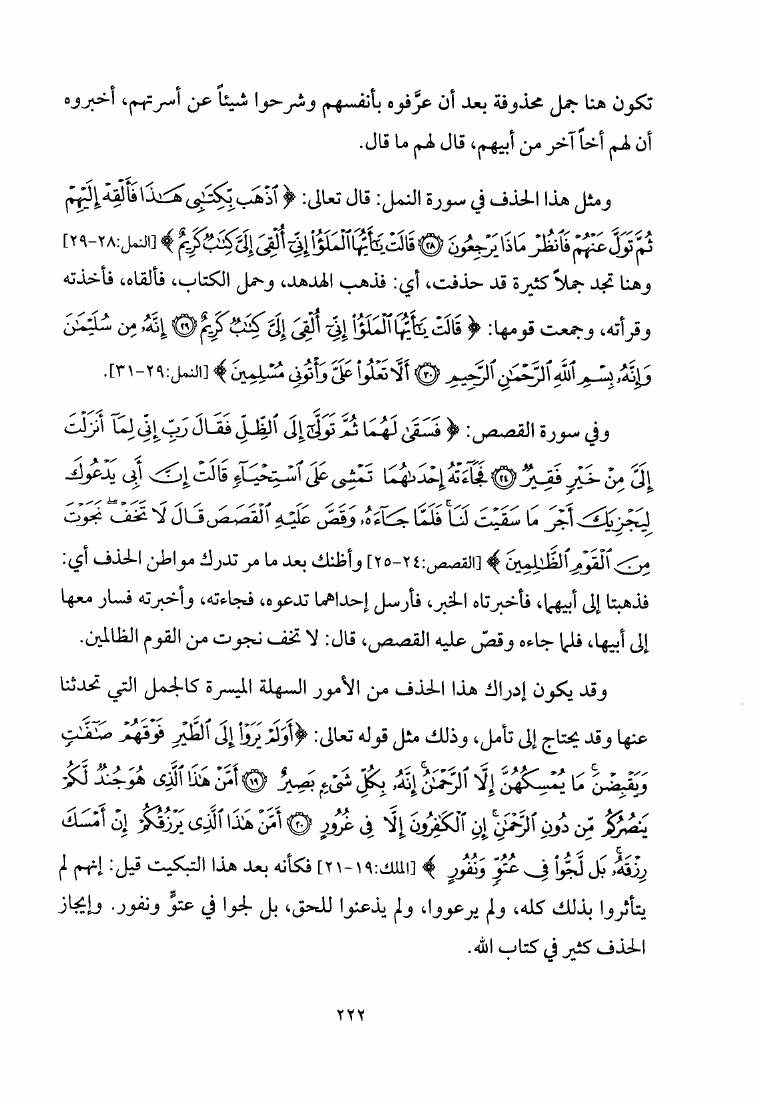 تكون هنا جمل محذوفة بعد أن عرَّفوه بأنفسهم وشرحوا شيئاً عن أسرتهم، أخبروه
أن لهم أخاً آخر من أبيهم، قال لهم ما قال.
ومثل هذا الحذف في سورة النمل: قال تعالى: ﴿ ٱذْهَب بِّكِتَٰبِى هَٰذَا فَأَلْقِهْ إِلَيْهِمْ
ثُمَّ تَوَلَّ عَنْهُمْ فَٱنظُرْ مَاذَا يَرْجِعُونَ ۝٢٨ قَالَتْ يَٰٓأَيُّهَا ٱلْمَلَؤُا۟ إِنِّىٓ أُلْقِىَ إِلَىَّ كِتَٰبٌ كَرِيمٌ ﴾ [النمل:٢٨-٢٩]
وهنا تجد جملاً كثيرة قد حذفت، أي: فذهب الهدهد، وحمل الكتاب، فألقاه، فأخذته
وقرأته، وجمعت قومها: ﴿ قَالَتْ يَٰٓأَيُّهَا ٱلْمَلَؤُا۟ إِنِّىٓ أُلْقِىَ إِلَىَّ كِتَٰبٌ كَرِيمٌ ۝٢٩ إِنَّهُۥ مِن سُلَيْمَٰنَ
وَإِنَّهُۥ بِسْمِ ٱللَّهِ ٱلرَّحْمَٰنِ ٱلرَّحِيمِ ۝٣٠ أَلَّا تَعْلُوا۟ عَلَىَّ وَأْتُونِى مُسْلِمِينَ ﴾ [النمل:٢٩-٣١].
وفي سورة القصص: ﴿ فَسَقَىٰ لَهُمَا ثُمَّ تَوَلَّىٰٓ إِلَى ٱلظِّلِّ فَقَالَ رَبِّ إِنِّى لِمَآ أَنزَلْتَ
إِلَىَّ مِنْ خَيْرٍ فَقِيرٌ ۝٢٤ فَجَآءَتْهُ إِحْدَىٰهُمَا تَمْشِى عَلَى ٱسْتِحْيَآءٍ قَالَتْ إِنَّ أَبِى يَدْعُوكَ
لِيَجْزِيَكَ أَجْرَ مَا سَقَيْتَ لَنَا ۚ فَلَمَّا جَآءَهُۥ وَقَصَّ عَلَيْهِ ٱلْقَصَصَ قَالَ لَا تَخَفْ ۖ نَجَوْتَ
مِنَ ٱلْقَوْمِ ٱلظَّٰلِمِينَ ﴾ [القصص:٢٤-٢٥] وأظنك بعد ما مر تدرك مواطن الحذف أي:
فذهبتا إلى أبيهما، فأخبرتاه الخبر، فأرسل إحداهما تدعوه، فجاءته، وأخبرته فسار معها
إلى أبيها، فلما جاءه وقصّ عليه القصص، قال: لا تخف نجوت من القوم الظالمين.
وقد يكون إدراك هذا الحذف من الأمور السهلة الميسرة كالجمل التي تحدثنا
عنها وقد يحتاج إلى تأمل، وذلك مثل قوله تعالى: ﴿أَوَلَمْ يَرَوْا۟ إِلَى ٱلطَّيْرِ فَوْقَهُمْ صَٰٓفَّٰتٍ
وَيَقْبِضْنَ ۚ مَا يُمْسِكُهُنَّ إِلَّا ٱلرَّحْمَٰنُ ۚ إِنَّهُۥ بِكُلِّ شَىْءٍۭ بَصِيرٌ ۝١٩ أَمَّنْ هَٰذَا ٱلَّذِى هُوَ جُندٌ لَّكُمْ
يَنصُرُكُم مِّن دُونِ ٱلرَّحْمَٰنِ ۚ إِنِ ٱلْكَٰفِرُونَ إِلَّا فِى غُرُورٍ ۝٢٠ أَمَّنْ هَٰذَا ٱلَّذِى يَرْزُقُكُمْ إِنْ أَمْسَكَ
رِزْقَهُۥ ۚ بَل لَّجُّوا۟ فِى عُتُوٍّ وَنُفُورٍ ﴾ [الملك:١٩-٢١] فكأنه بعد هذا التبكيت قيل: إنهم لم
يتأثروا بذلك كله، ولم يرعووا، ولم يذعنوا للحق، بل لجوا في عتوٍّ ونفور. وإيجاز
الحذف كثير في كتاب الله.
٢٢٢